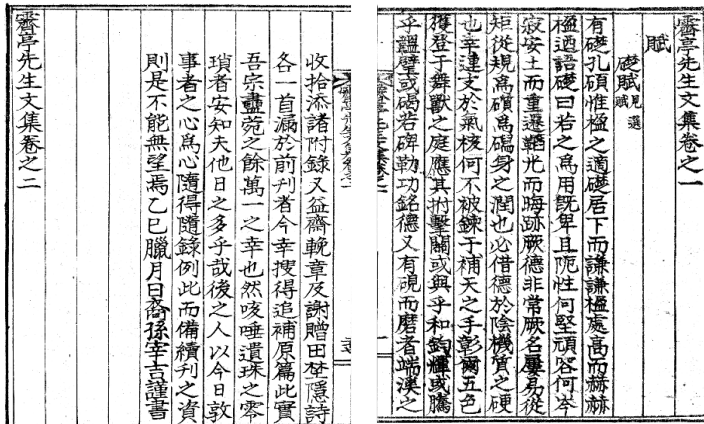 霽亭先生文集卷之一
賦
礎賦 見選賦
有礎孔碩惟楹之適礎居下而謙謙楹處高而赫赫
楹迺語礎曰若之爲用旣卑且阨性何堅頑容何岑
寂安土而重遷韜光而晦跡厥德非常厥名屢易從
矩從規爲礩爲磶身之潤也必借德於陰機質之硬
也幸連支於氣核何不被鍊于補天之手彰爾五色
獲登于舞獸之庭應其拊擊關或與乎和鈞輝或騰
乎韞璧或碣若碑勒功銘德又有硯而磨者端溪之
收拾添諸附錄又益齋輓章及謝贈田埜隱詩
各一首漏於前刊者今幸搜得追補原篇此實
吾宗蠹菀之餘萬一之幸也然咳唾遺珠之零
瑣者安知夫他日之多乎哉後之人以今日敦
事者之心爲心隨得隨錄例此而備續刊之資
則是不能無望焉乙巳臘月日裔孫宰吉謹書
霽亭先生文集卷之二